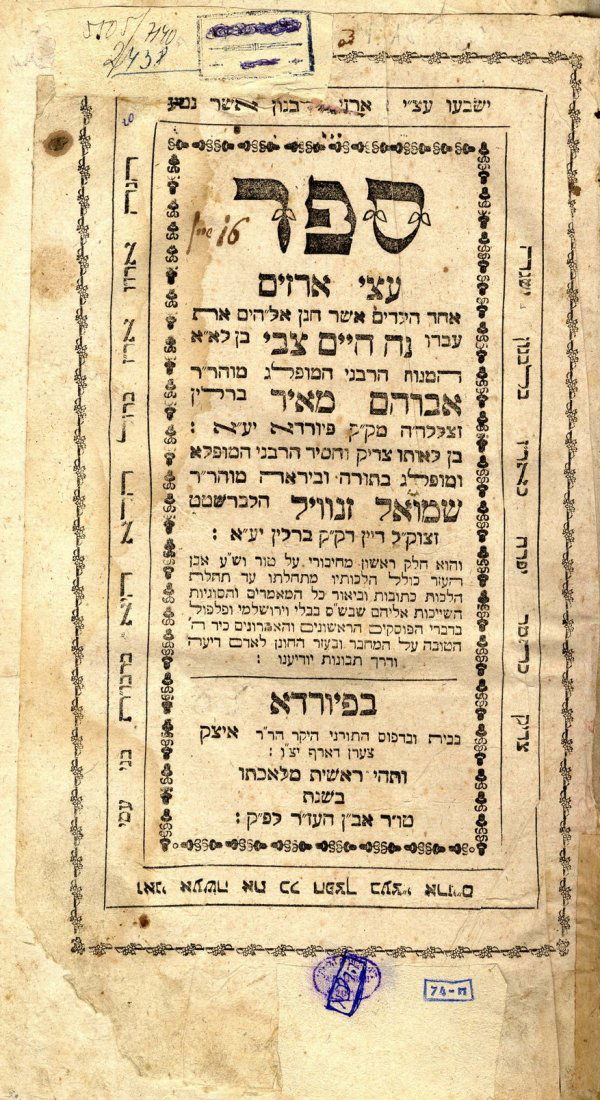 5105/7140
2438
ישבעו עצ״י ארזי לבנון אשר נטע
ספר
עצי ארזים
אחד הילדים אשר חנן אלהים את
עבדו נח חיים צבי בן לא״א
המנוח הרבני המופלג מוהר״ר
אברהם מאיר ברלין
זצללה״ה מק״ק פיורדא יע״א :
בן לאותו צדיק וחסיד הרבני המופלא
ומופלג בתורה ובירא״ה מוהר״ר
שמואל זנוויל הלברשטט
זצוק״ל דיין דק״ק ברלין יע״א :
והוא חלק ראשון מחיבורי על טור וש״ע אבן
העזר כולל הלכותיו מתחלתו עד תחלת
הלכות כתובות וביאור כל המאמרים והסוגיות
השייכות אליהם שבש״ס בבלי וירושלמי ופלפול
בדברי הפוסקים הראשונים והאחרונים כיד ה׳
הטובה על המחבר ובעזר החונן לאדם דיעה
ודרך תבונות יודיענו :
בפיורדא
בבית ובדפוס התורני היקר הר״ר איצק
צערן דארף יצ״ו :
ותהי ראשית מלאכתו
בשנת
טו״ר אב״ן העז״ר לפ״ק :
צדיק כתמר יפרח כארז בלבנון ישגה
ואני אעשה את כל חפצך בעצי ארזים
בני עמי
74-ח